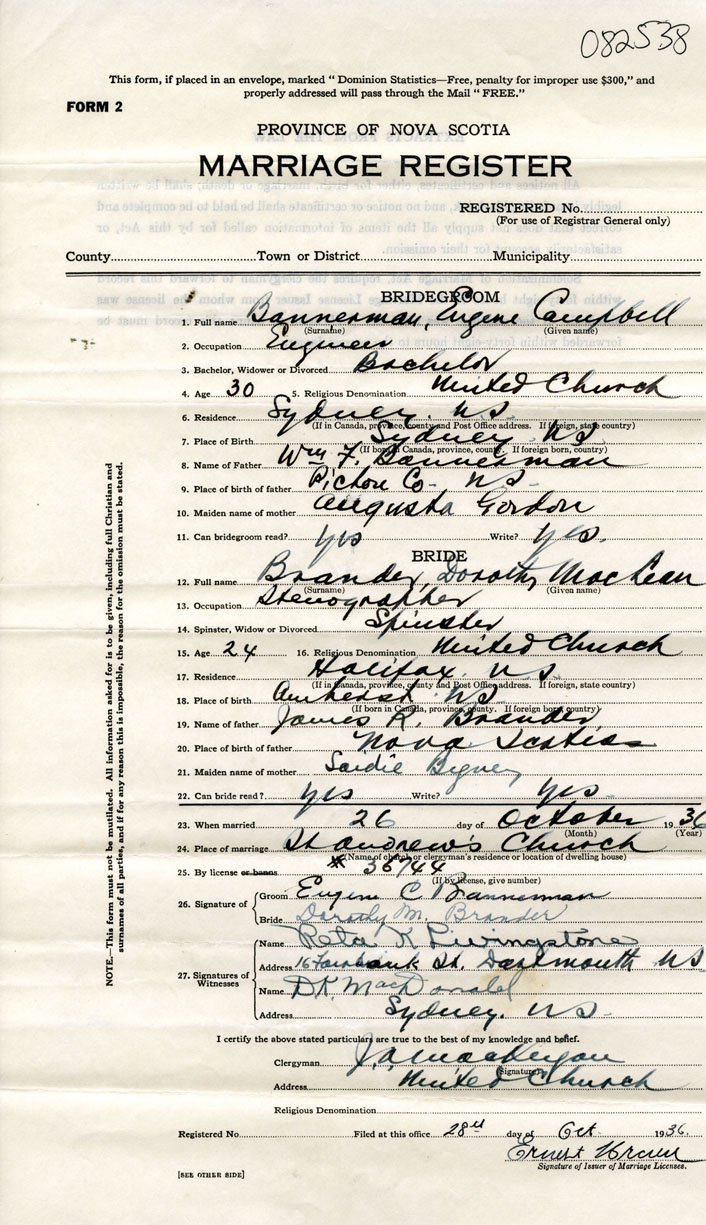 082538
This form, if placed in an envelope, marked “ Dominion Statistics—Free, penalty for improper use $300,” and
properly addressed will pass through the Mail “ FREE.”
FORM 2
PROVINCE OF NOVA SCOTIA
MARRIAGE REGISTER
REGISTERED No.
(For use of Registrar General only)
County Town or District Municipality
BRIDEGROOM
1. Full name Bannerman, Eugene Campbell
(Surname) (Given name)
2. Occupation Engineer
3. Bachelor, Widower or Divorced Bachelor
4. Age 30 5. Religious Denomination United Church
6. Residence Sydney. N.S.
(If in Canada, province, county and Post Office address. If foreign, state country)
7. Place of Birth Sydney N.S
(If born in Canada, province, county. If foreign born, country)
8. Name of Father Wm F. Bannerman
9. Place of birth of father Pictou Co- N.S-
10. Maiden name of mother Augusta Gordon
11. Can bridegroom read? yes Write? yes.
BRIDE
12. Full name Brander, Dorothy MacLean
(Surname) (Given name)
13. Occupation Stenographer
14. Spinster, Widow or Divorced Spinster
15. Age 24 16. Religious Denomination United Church
17. Residence Halifax, N.S.
(If in Canada, province, county and Post Office address. If foreign, state country)
18. Place of birth Amherst N.S
(If born in Canada, province, county. If foreign born country)
19. Name of father James R. Brander
20. Place of birth of father Nova Scotia
21. Maiden name of mother Sardie
22. Can bride read? yes Write? yes-
23. When married 26 day of October 1936
(Month) (Year)
24. Place of marriage St Andrew's Church
(Name of church or clergyman's residence or location of dwelling house)
25. By license or banns # 36744
(If by license, give number)
26. Signature of Groom Eugene C Bannerman
Bride Dorothy M. Brander
27. Signatures of Witnesses
Name Reta K Livingstone
Address 16 Fairbank St. Dartmouth N S
Name D.K. MacDonald
Address Sydney. N.S.
I certify the above stated particulars are true to the best of my knowledge and belief.
Clergyman J. A.
(Signature)
Address United Church
Religious Denomination
Registered No Filed at this office 28th day of Oct 1936.
Ernest
Signature of Issuer of Marriage Licenses.
[SEE OTHER SIDE]
NOTE.—This form must not be mutilated. All information asked for is to be given, including full Christian and
surnames of all parties, and if for any reason this is impossible, the reason for the omission must be stated.